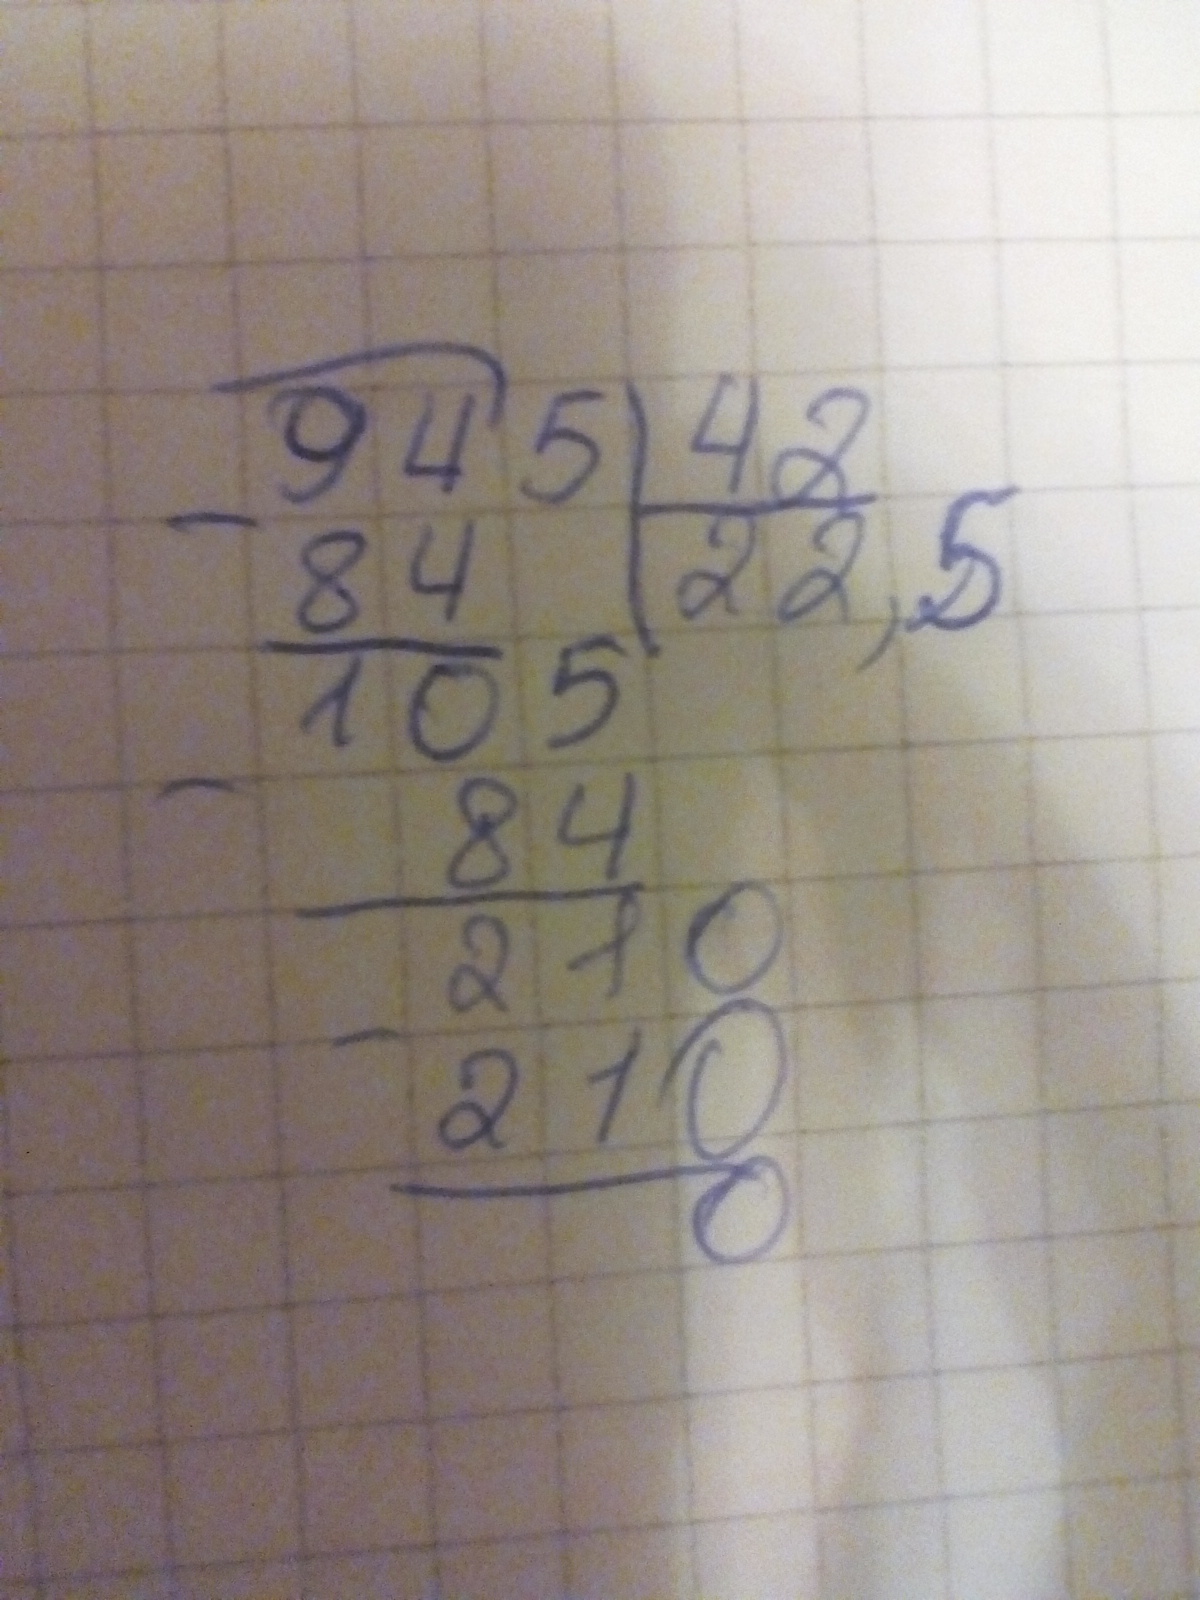 945 | 42
- 84 | 22,5
105
- 84
210
- 210
0